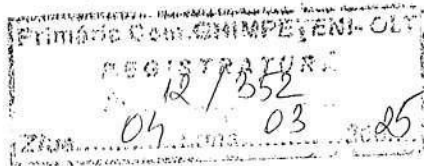 Primăria Com. GHIMPEȚENI-OLT
REGISTRATURA
12/352
Ziua 04 Luna 03 20 25